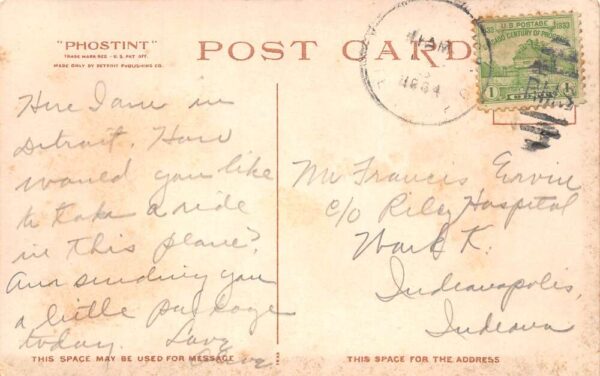 "PHOSTINT"
TRADE MARK REG - U.S. PAT. OFF.
MADE ONLY BY DETROIT PUBLISHING CO.
POST CARD
U.S. POSTAGE
CENTURY OF PROGRESS
1933
1
1
Here I am in
Detroit. How
would you like
to take a ride
in this plane?
Am sending you
a little package
today. Love
Mr Francis Ervin
c/o Riley Hospital
Ward K.
Indianapolis,
Indiana
THIS SPACE MAY BE USED FOR MESSAGE
THIS SPACE FOR THE ADDRESS